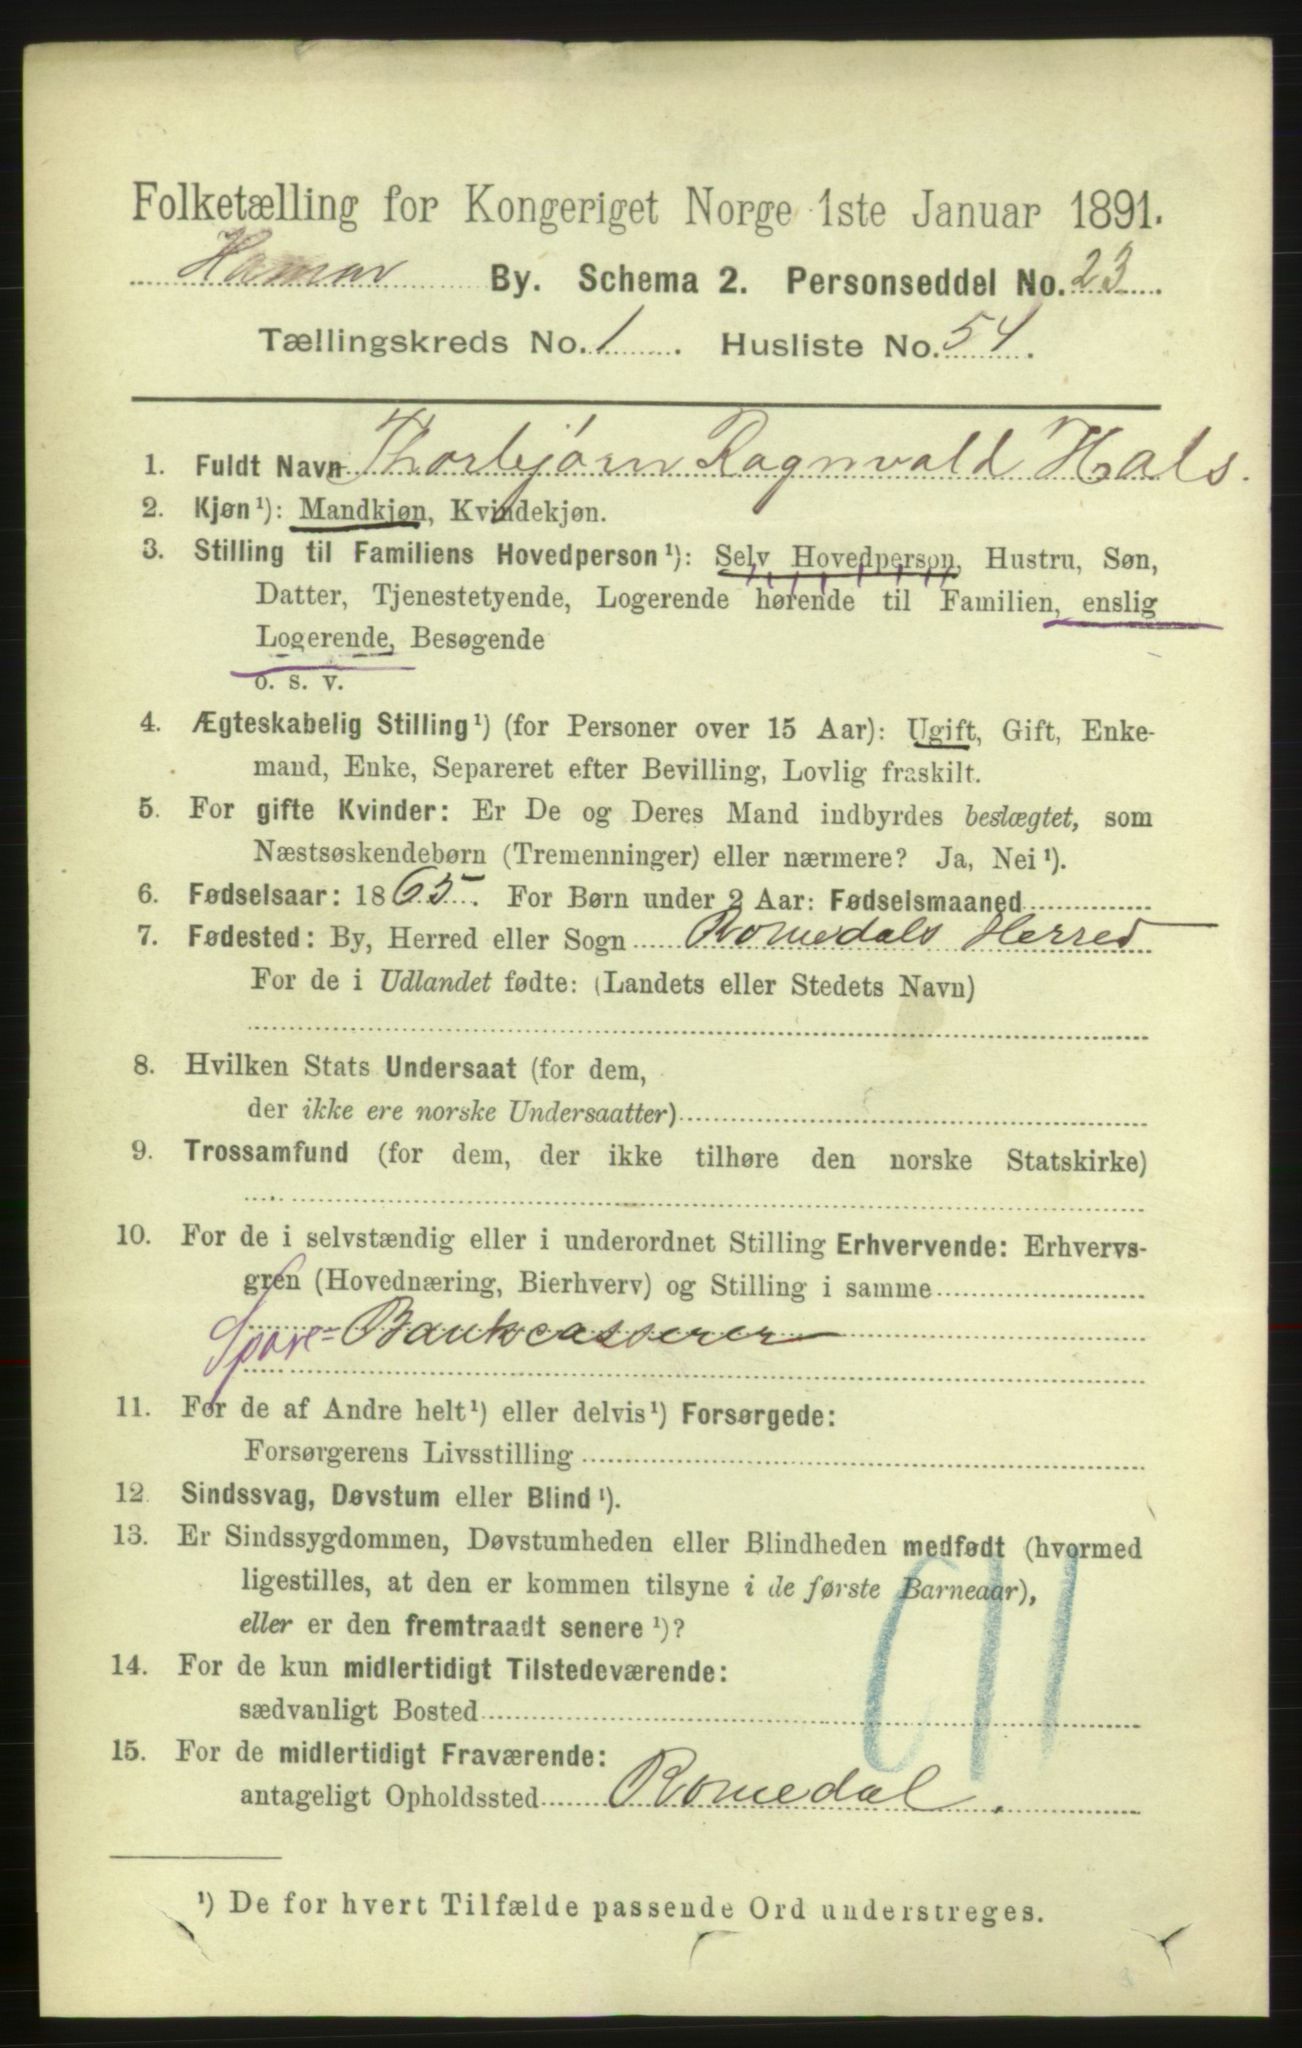 Folketælling for Kongeriget Norge 1ste Januar 1891.
Hamar By. Schema 2. Personseddel No. 23
Tællingskreds No. 1. Husliste No. 54.
1. Fuldt Navn Thorbjørn Ragnvald Hals.
2. Kjøn¹): Mandkjøn, Kvindekjøn.
3. Stilling til Familiens Hovedperson¹): Selv Hovedperson, Hustru, Søn,
Datter, Tjenestetyende, Logerende hørende til Familien, enslig
Logerende, Besøgende
o. s. v.
4. Ægteskabelig Stilling¹) (for Personer over 15 Aar): Ugift, Gift, Enke-
mand, Enke, Separeret efter Bevilling, Lovlig fraskilt.
5. For gifte Kvinder: Er De og Deres Mand indbyrdes beslægtet, som
Næstsøskendebørn (Tremenninger) eller nærmere? Ja, Nei¹).
6. Fødselsaar: 1865. For Børn under 2 Aar: Fødselsmaaned
7. Fødested: By, Herred eller Sogn Romedals Herred
For de i Udlandet fødte: (Landets eller Stedets Navn)
8. Hvilken Stats Undersaat (for dem,
der ikke ere norske Undersaatter)
9. Trossamfund (for dem, der ikke tilhøre den norske Statskirke)
10. For de i selvstændig eller i underordnet Stilling Erhvervende: Erhvervs-
gren (Hovednæring, Bierhverv) og Stilling i samme
Spare=Bankcasserer
11. For de af Andre helt¹) eller delvis¹) Forsørgede:
Forsørgerens Livsstilling
12. Sindssvag, Døvstum eller Blind¹).
13. Er Sindssygdommen, Døvstumheden eller Blindheden medfødt (hvormed
ligestilles, at den er kommen tilsyne i de første Barneaar),
eller er den fremtraadt senere¹)?
14. For de kun midlertidigt Tilstedeværende:
sædvanligt Bosted
15. For de midlertidigt Fraværende:
antageligt Opholdssted Romedal.
¹) De for hvert Tilfælde passende Ord understreges.